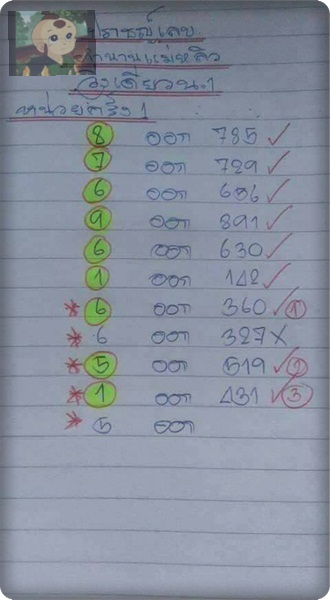 ปราชญ์เลข
ตำนานแม่หลิว
วิ่งเดี่ยวน.1
หน่วยครั้ง 1
8 ออก 785 ✓
7 ออก 729 ✓
6 ออก 636 ✓
9 ออก 891 ✓
6 ออก 630 ✓
1 ออก 142 ✓
* 6 ออก 360 ✓ 1
* 6 ออก 327 X
* 5 ออก 519 ✓ 2
* 1 ออก 431 ✓ 3
* 5 ออก